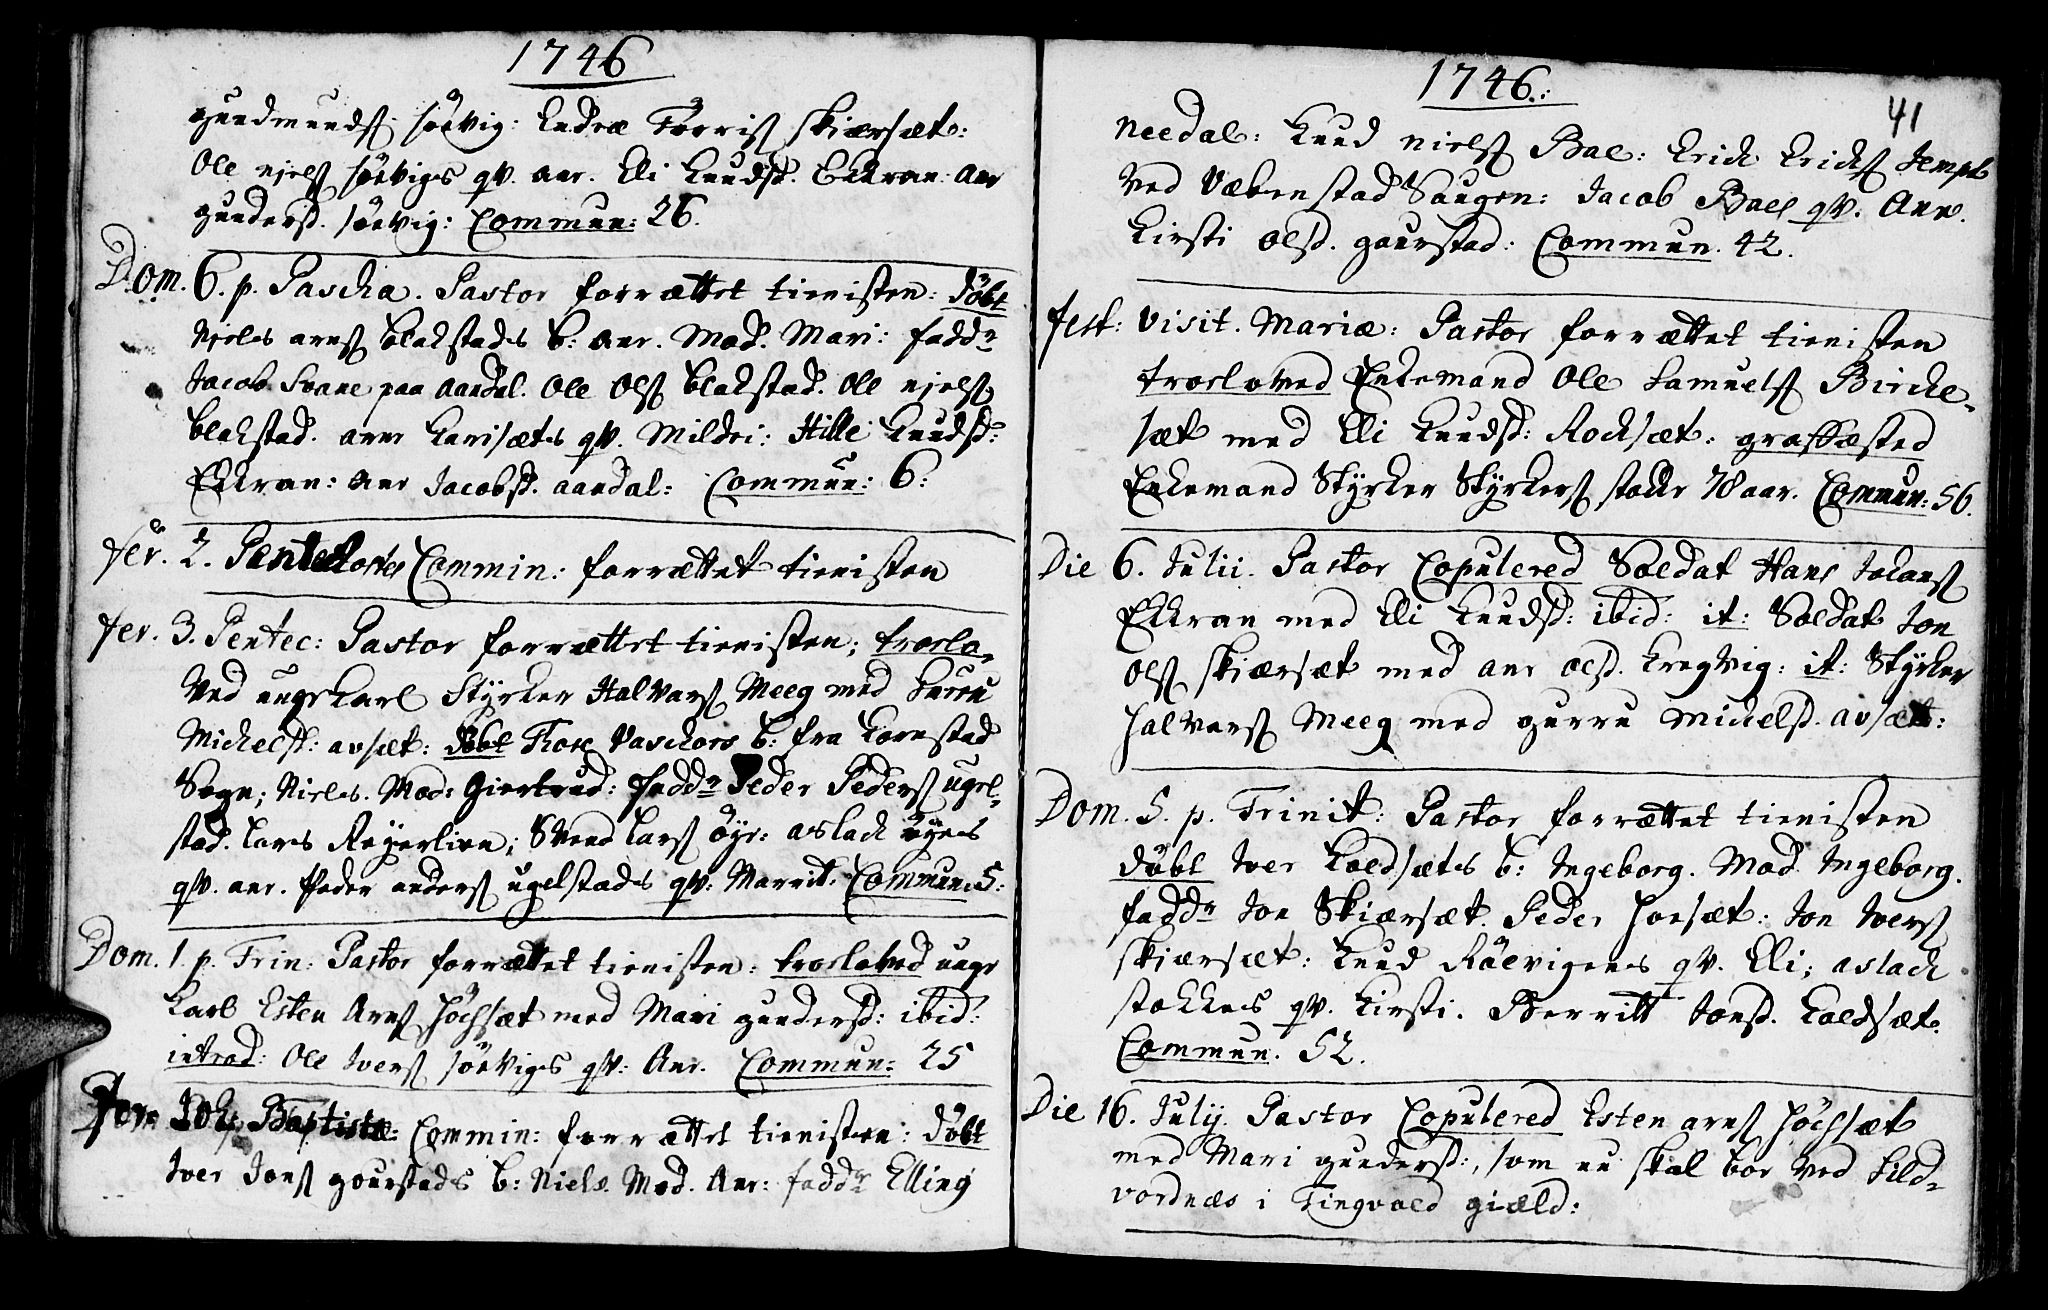 1746
gundmundſ: söevig: Endre Torriſ skiærsæt:
Ole njelſ söevigs qv. anr. Eli Knudsd. Eckran: Anr
gundersd. söevig: Commun: 26.
Dom. 6. p. Pascha. Pastor forrættet tienisten: döbt
Njels arnſ blakstads b: anr. Mod. Mari: fadd.r
Jacob Svane paa aandal. Ole Olſ blakstad. Ole njelſ
blakstad. anr Karisæts qv. Mildri: Hille Knudsd:
Eckran: anr Jacobsd. aandal: Commun: 6:
fer. 2. Pentecostes Commin: forrættet tienisten
fer. 3. Pentec: Pastor forrættet tienisten; troelo-
ved ungekarl Styrker Halvarſ Meeg med Gurru
Michelsd: avsæt: döbt Thore Vaschors b: fra Kornstad
Sogn; Niels. Mod: Giertrud: fadd.r Peder Pederſ ugel-
stad. Lars Røyerlien; Svend Larſ öyr: aslach öyes
qv. anr. Peder anderſ ugelstads qv: Marrit. Commun: 5:
Dom. 1. p. Trin: Pastor forrættet tienisten: troeloved unge
Karl Esten Arnſ Höchsæt med Mari gundersd: ibid:
introd: Ole Iverſ söevigs qv: Anr. Commun: 25
Fer. Joh: Baptistæ: Commin: forrættet tienisten: döbt
Iver Jonſ gourstads b: Niels. Mod. Anr: fadd.r Elling
1746.:
41
needal: Knud nielſ Bae: Erich Erichſ Tempe
ved Væbenstad Saugen: Jacob Baes qv. Ann.
Kirsti Olsd. gourstad: Commun. 42.
fest: Visit. Mariæ: Pastor forrættet tienisten
troeloved Enkemand Ole Samuelſ Birche-
sæt med Eli Knudsd: Rochsæt: grafæsted
Enkemand Styrker Styrkerſ stocke 78 aar. Commun: 56.
Die 6. Julii. Pastor Copulered Soldat Hans Johanſ
Eckran med Eli Knudsd: ibid: it: Soldat Jon
Olſ skiærsæt med anr olsd. Kregvig: it: Styrker
Halvarſ Meeg med gurru Michelsd. avsæt:
Dom. 5. p. Trinit: Pastor forrættet tienisten
döbt Iver Koldsæts b: Ingeborg. Mod. Ingeborg.
fadd.r Jon Skiærsæt. Peder Horsæt: Jon Iverſ
skiærsæt: Knud Röevigens qv. Eli; aslach
stokkes qv. Kirsti. Berritt Jonsd. Koldsæt.
Commun. 52.
Die 16. Julij. Pastor Copulered Esten arnſ Höchsæt
med Mari gundersd:, som nu skal boe ved Sild-
vordnæs i Tingvold giæld: